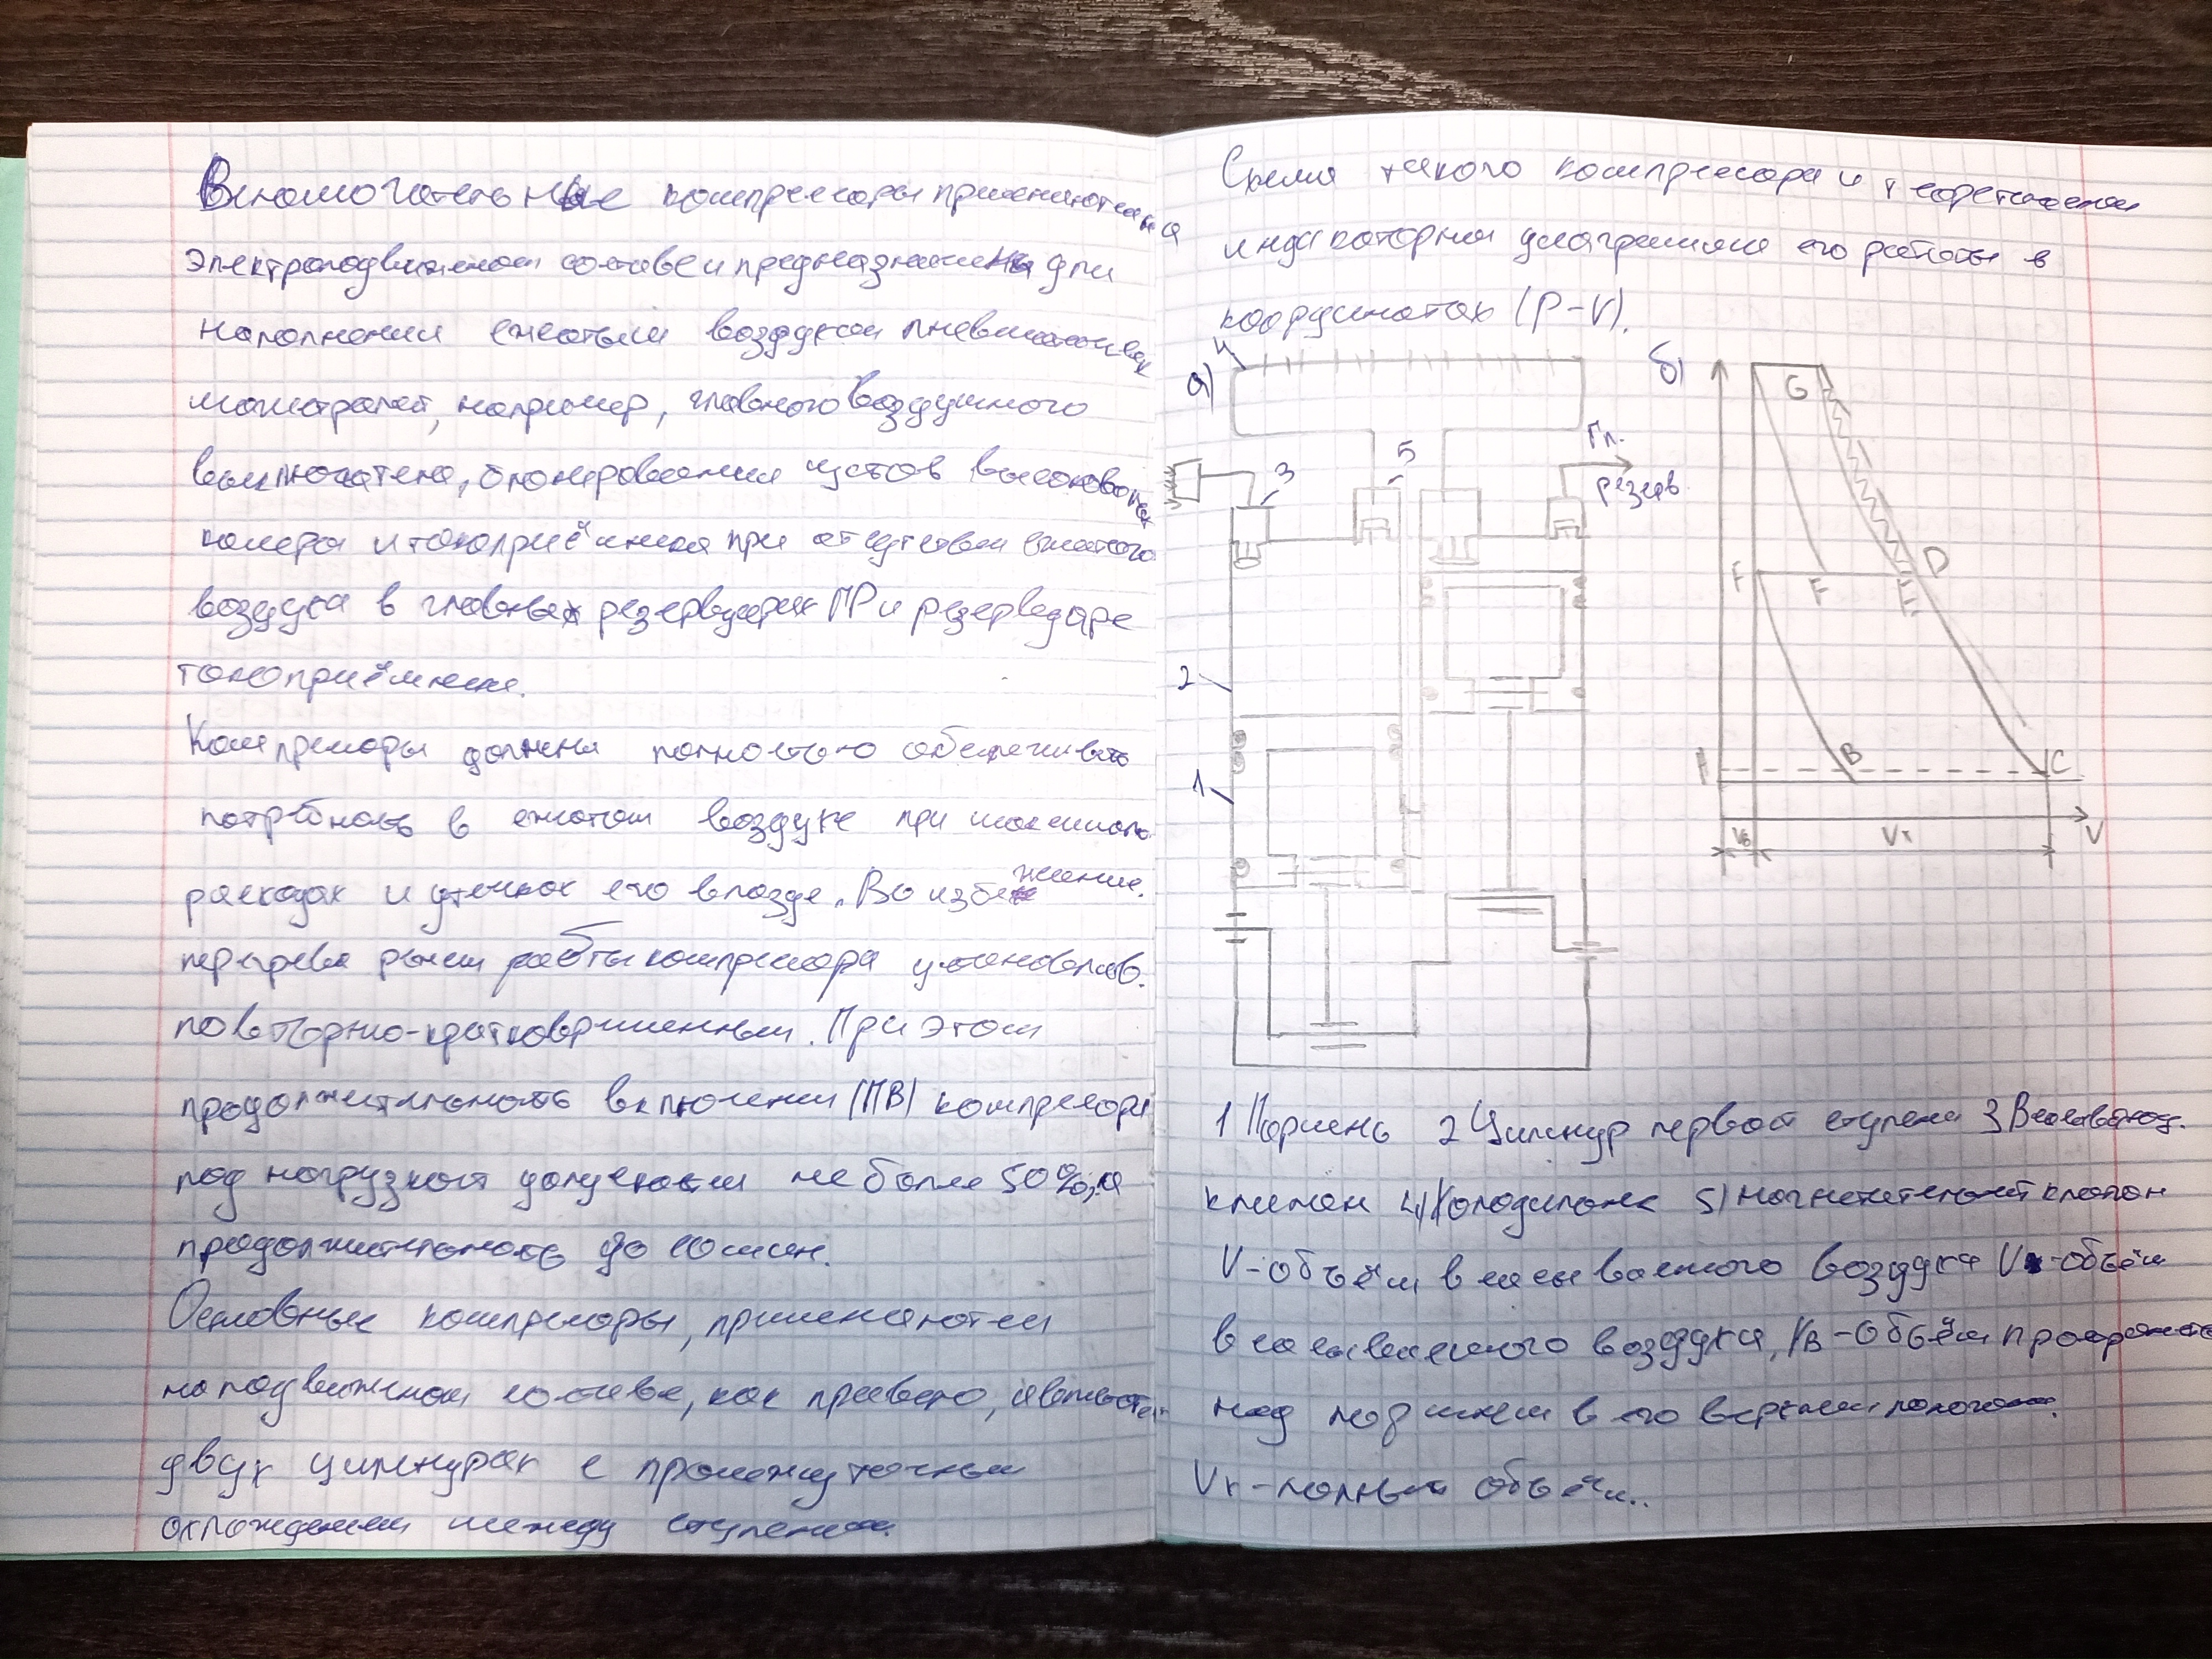 Вспомогательные компрессоры применяются на
электроподвижном составе и предназначены для
наполнения сжатым воздухом пневматических
магистралей, например, главного воздушного
выключателя, блокирования щитов высоковольт
камеры и токоприёмника при отсутствии сжатого
воздуха в главных резервуарах ГР и резервуаре
токоприёмника.
Компрессоры должны полностью обеспечивать
потребность в сжатом воздухе при максимальн
расходах и утечках его в поезде. Во избежание.
перегрева режим работы компрессора устанавлив.
повторно-кратковременным. При этом
продолжительность включения (ПВ) компрессора
под нагрузкой допускается не более 50%, а
продолжительность до 10 мин.
Основные компрессоры, применяются
на подвижном составе, как правило, являются
двух цилиндрах с промежуточным
охлаждением между ступенями.
Схема такого компрессора и теоретическая
индикаторная диаграмма его работы в
координатах (P-V).
а)
4
3
5
Гл.
резерв.
2
1
б)
G
F
F
D
B
C
V
Vв
Vк
1 Поршень 2 Цилиндр первой ступени 3 Всасывающ.
клапан 4) Холодильник 5) нагнетательный клапан
V-объём всасываемого воздуха V -объём
всасываемого воздуха, Vв-Объём пространства
над поршнем в его верхнем положении.
Vк-полный объём..